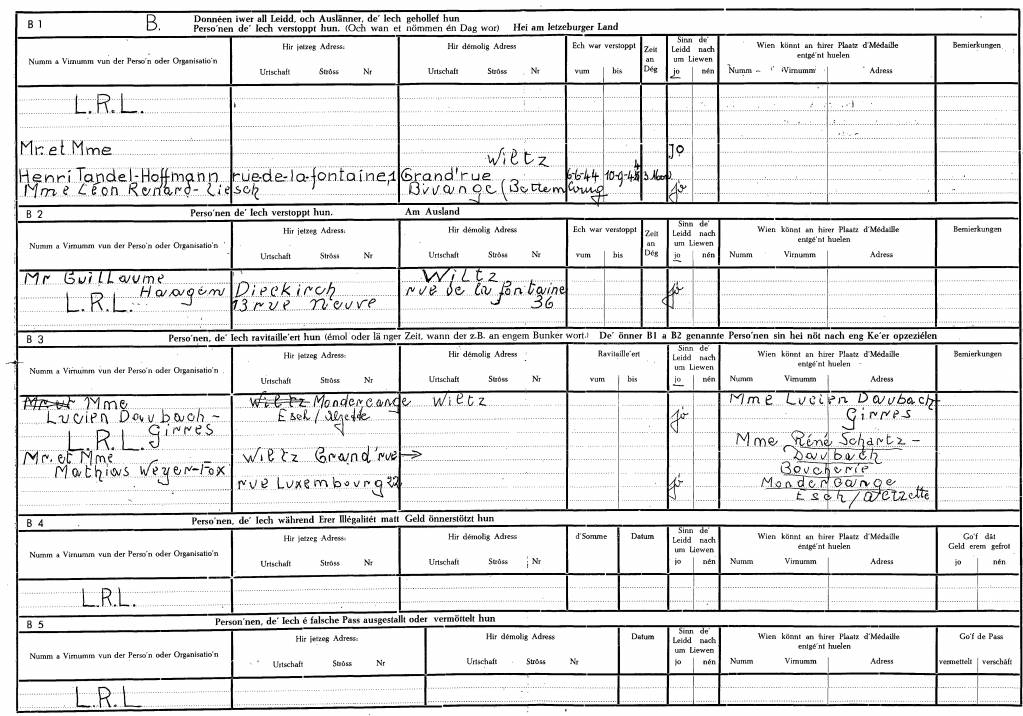 B 1 B. Donnéen iwer all Leidd, och Auslänner, de' Iech gehollef hun
Perso'nen de' Iech verstoppt hun. (Och wan et nömmen én Dag wor) Hei am letzeburger Land
Numm a Virnumm vun der Perso'n oder Organisatio'n
Hir jetzeg Adress:
Urtschaft Ströss Nr
Hir démolig Adress
Urtschaft Ströss Nr
Ech war verstoppt
vum bis
Zeit an Dég
Sinn de' Leidd nach um Liewen
jo nén
Wien könnt an hirer Plaatz d'Médaille entgé'nt huelen
Numm Virnumm Adress
Bemierkungen
L.R.L.
Mr. et Mme Wiltz jo
Henri Tandel-Hoffmann rue-de-la-fontaine,1 Grand'rue 6-6-44 10-9-44
Mme Léon Renard-Liesch Bivange (Bettembourg jo
B 2 Perso'nen de' Iech verstoppt hun. Am Ausland
Numm a Virnumm vun der Perso'n oder Organisatio'n
Hir jetzeg Adress:
Urtschaft Ströss Nr
Hir démolig Adress
Urtschaft Ströss Nr
Ech war verstoppt
vum bis
Zeit an Dég
Sinn de' Leidd nach um Liewen
jo nén
Wien könnt an hirer Plaatz d'Médaille entgé'nt huelen
Numm Virnumm Adress
Bemierkungen
Mr Guillaume Wiltz
Haagen Dieckirch rue de la fontaine jo
L.R.L. 13 rue Neuve 36
B 3 Perso'nen, de' Iech ravitaille'ert hun (émol oder länger Zeit, wann der z.B. an engem Bunker wort.) De' önner B1 a B2 genannte Perso'nen sin hei nöt nach eng Ke'er opzeziélen
Numm a Virnumm vun der Perso'n oder Organisatio'n
Hir jetzeg Adress:
Urtschaft Ströss Nr
Hir démolig Adress
Urtschaft Ströss Nr
Ravitaille'ert
vum bis
Sinn de' Leidd nach um Liewen
jo nén
Wien könnt an hirer Plaatz d'Médaille entgé'nt huelen
Numm Virnumm Adress
Bemierkungen
Mr et Mme Wiltz Mondercange Wiltz Mme Lucien Daubach-
Lucien Daubach- Esch/Alzette jo Girres
Girres
L.R.L. Mme Réné Schartz-
Mr. et Mme Wiltz Grand'rue → Daubach
Mathias Weyer-Fox Boucherie
rue Luxembourg 22 jo Mondercange
Esch/Alzette
B 4 Perso'nen, de' Iech während Erer Illégalitét matt Geld önnerstötzt hun
Numm a Virnumm vun der Perso'n oder Organisatio'n
Hir jetzeg Adress:
Urtschaft Ströss Nr
Hir démolig Adress
Urtschaft Ströss Nr
d'Somme
Datum
Sinn de' Leidd nach um Liewen
jo nén
Wien könnt an hirer Plaatz d'Médaille entgé'nt huelen
Numm Virnumm Adress
Go'f dât Geld erem gefrot
jo nén
L.R.L.
B 5 Person'nen, de' Iech é falsche Pass ausgestallt oder vermöttelt hun
Numm a Virnumm vun der Perso'n oder Organisatio'n
Hir jetzeg Adress:
Urtschaft Ströss Nr
Hir démolig Adress
Urtschaft Ströss Nr
Datum
Sinn de' Leidd nach um Liewen
jo nén
Wien könnt an hirer Plaatz d'Médaille entgé'nt huelen
Numm Virnumm Adress
Go'f de Pass
vermettelt verschâft
L.R.L